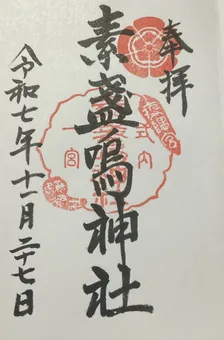 奉拝
素盞嗚神社
式内
一宮
令和七年十一月二十七日